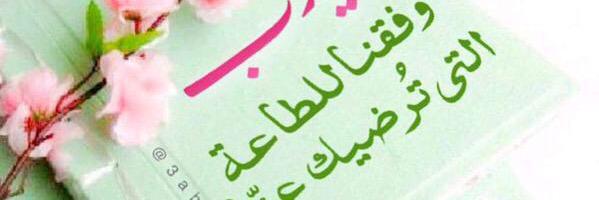 وفقنا للطاعة
التى تُرضيك
@3a